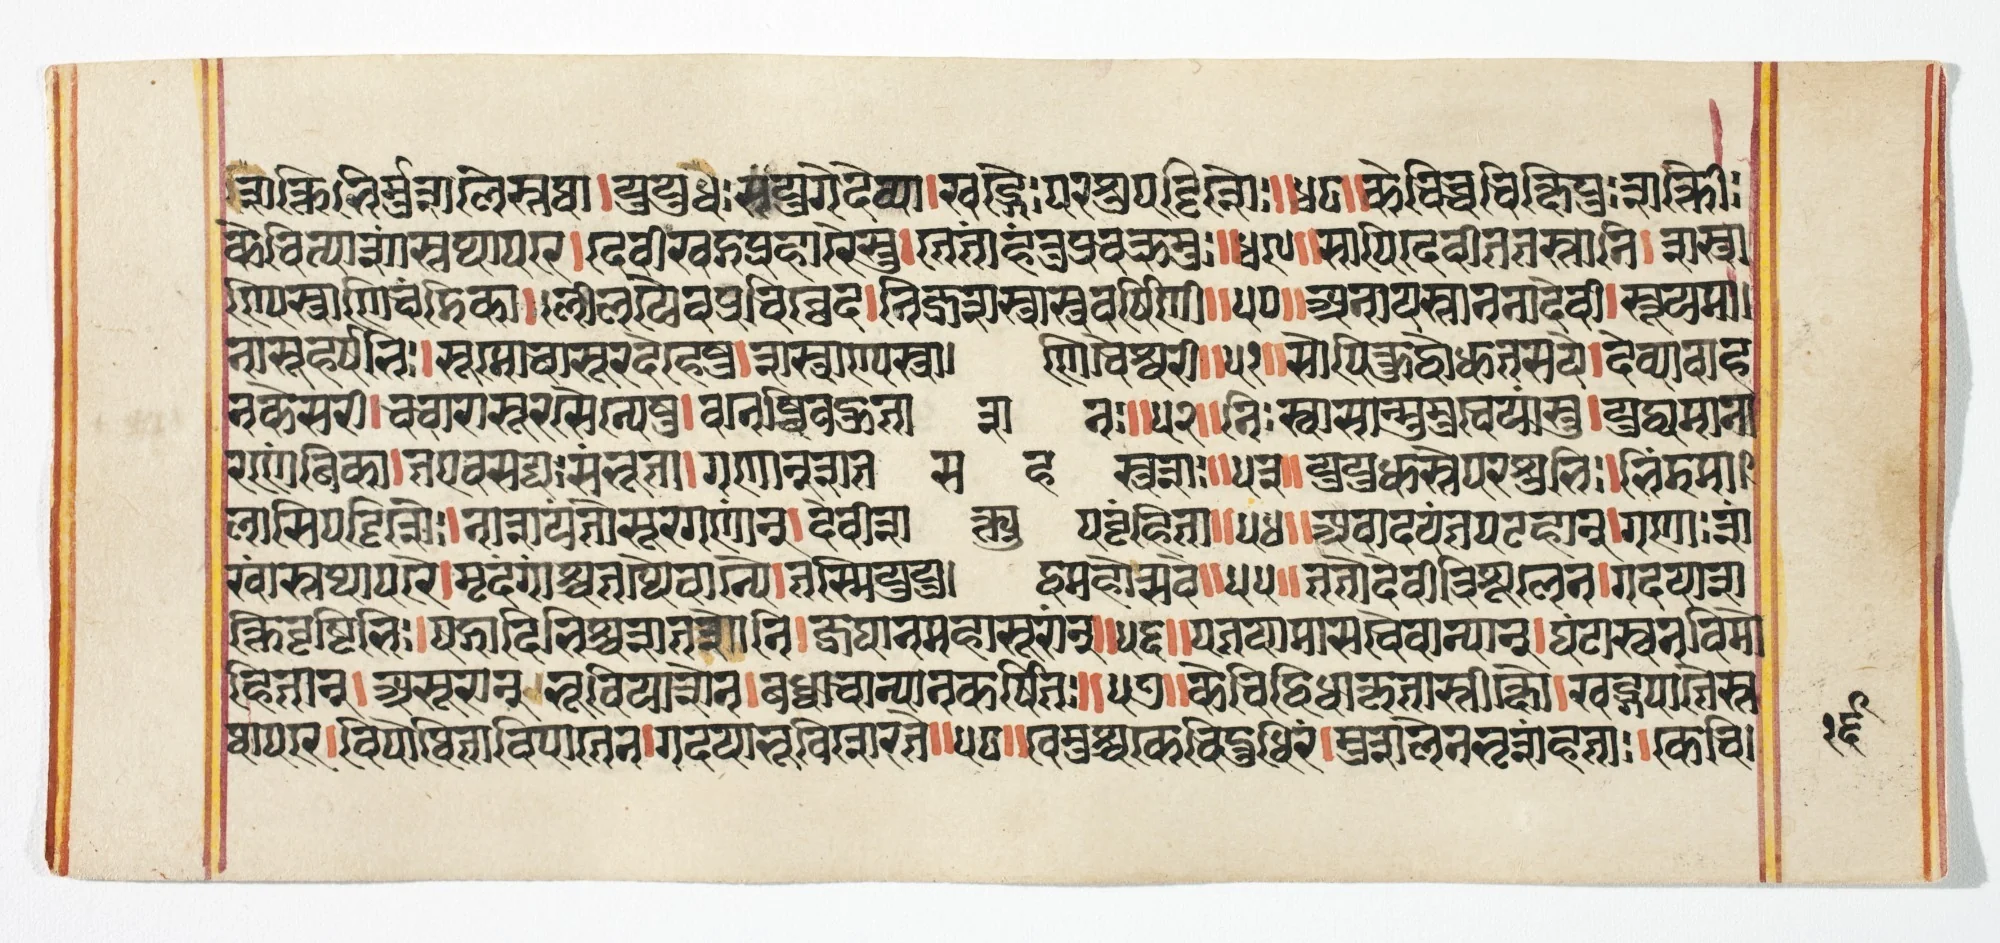 शक्तिभिर्मुशलैस्तथा। युयुधुः संयुगे देव्या। खड्गैः परशुपट्टिशैः॥४८॥केचिच्च चिक्षिपुः शक्तीः
केचित्पाशांस्तथापरे। देवीं खड्गप्रहारैस्तु। ते तां हंतुं प्रचक्रमुः॥४९॥सापि देवी ततस्तानि। शस्त्रा
ण्यस्त्राणि चंडिका। लीलयैव प्रचिच्छेद। निजशस्त्रास्त्रवर्षिणी॥५०॥अनायस्तानना देवी। स्तूयमा
ना सुरर्षिभिः। मुमोचासुरदेहेषु। शस्त्राण्यस्त्राणि चेश्वरी॥५१॥सोपि क्रुद्धो धुतसटो। देव्या वाह
नकेसरी। चचारासुरसैन्येषु। वनेष्विव हुताशनः॥५२॥निःश्वासान्मुमुचे यांस्तु। युध्यमाना
रणेंबिका। त एव सद्यः संभूता। गणाः शतसहस्रशः॥५३॥युयुधुस्ते परशुभिः। र्भिंदिपा
लासिपट्टिशैः। नाशयंतोसुरगणान्। देवीशक्त्युपबृंहिताः॥५४॥अवादयंत पटहान्। गणाः शं
खांस्तथापरे। मृदंगांश्च तथैवान्ये। तस्मिन्युद्धमहोत्सवे॥५५॥ततो देवी त्रिशूलेन। गदया श
क्तिवृष्टिभिः। खड्गादिभिश्च शतशो। निजघान महासुरान्॥५६॥पातयामास चैवान्यान्। घंटास्वनविमो
हितान्। असुरान् भुवि पाशेन। बद्ध्वा चान्यानकर्षयत्॥५७॥केचिद्द्विधाकृतास्तीक्ष्णैः। खड्गपातैस्त
थापरे। विपोथिता निपातेन। गदया भुवि शेरते॥५८॥वेमुश्च केचिद्रुधिरं। मुशलेन भृशं हताः। केचि
१६